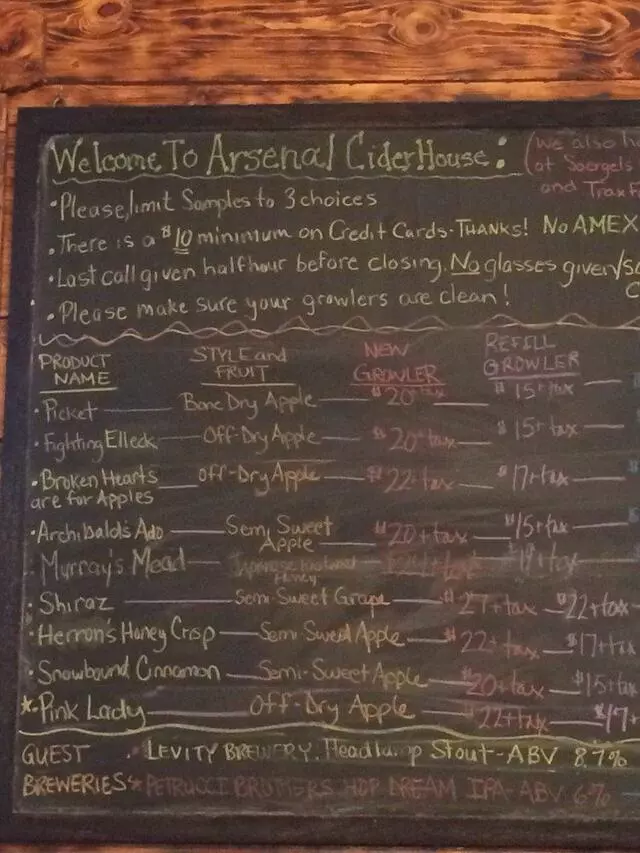 Welcome To Arsenal CiderHouse: (We also ha
at Soergels
and Trax F
• Please, limit Samples to 3 choices
• There is a $10 minimum on Credit Cards • THANKS! No AMEX
• Last call given half hour before closing. No glasses given/so
• Please make sure your growlers are clean!
PRODUCT NAME STYLE and FRUIT NEW GROWLER REFILL GROWLER
• Picket — Bone Dry Apple — $20+tax — $15+tax —
• Fighting Elleck — Off-Dry Apple — $20+tax — $15+tax —
• Broken Hearts are for Apples — Off-Dry Apple — $22+tax — $17+tax —
• Archibalds Ado — Semi Sweet Apple — $20+tax — $15+tax —
Murray's Mead — Honey
• Shiraz — Semi-Sweet Grape — $27+tax — $22+tax
• Herron's Honey Crisp — Semi Sweet Apple — $22+tax — $17+tax
• Snowbound Cinnamon — Semi-Sweet Apple — $20+tax — $15+tax
* • Pink Lady — Off-Dry Apple — $22+tax — $17+
GUEST BREWERIES • LEVITY BREWERY. Headlamp Stout - ABV 8.7%
* PETRUCCI BROTHERS HOP DREAM IPA - ABV 6%